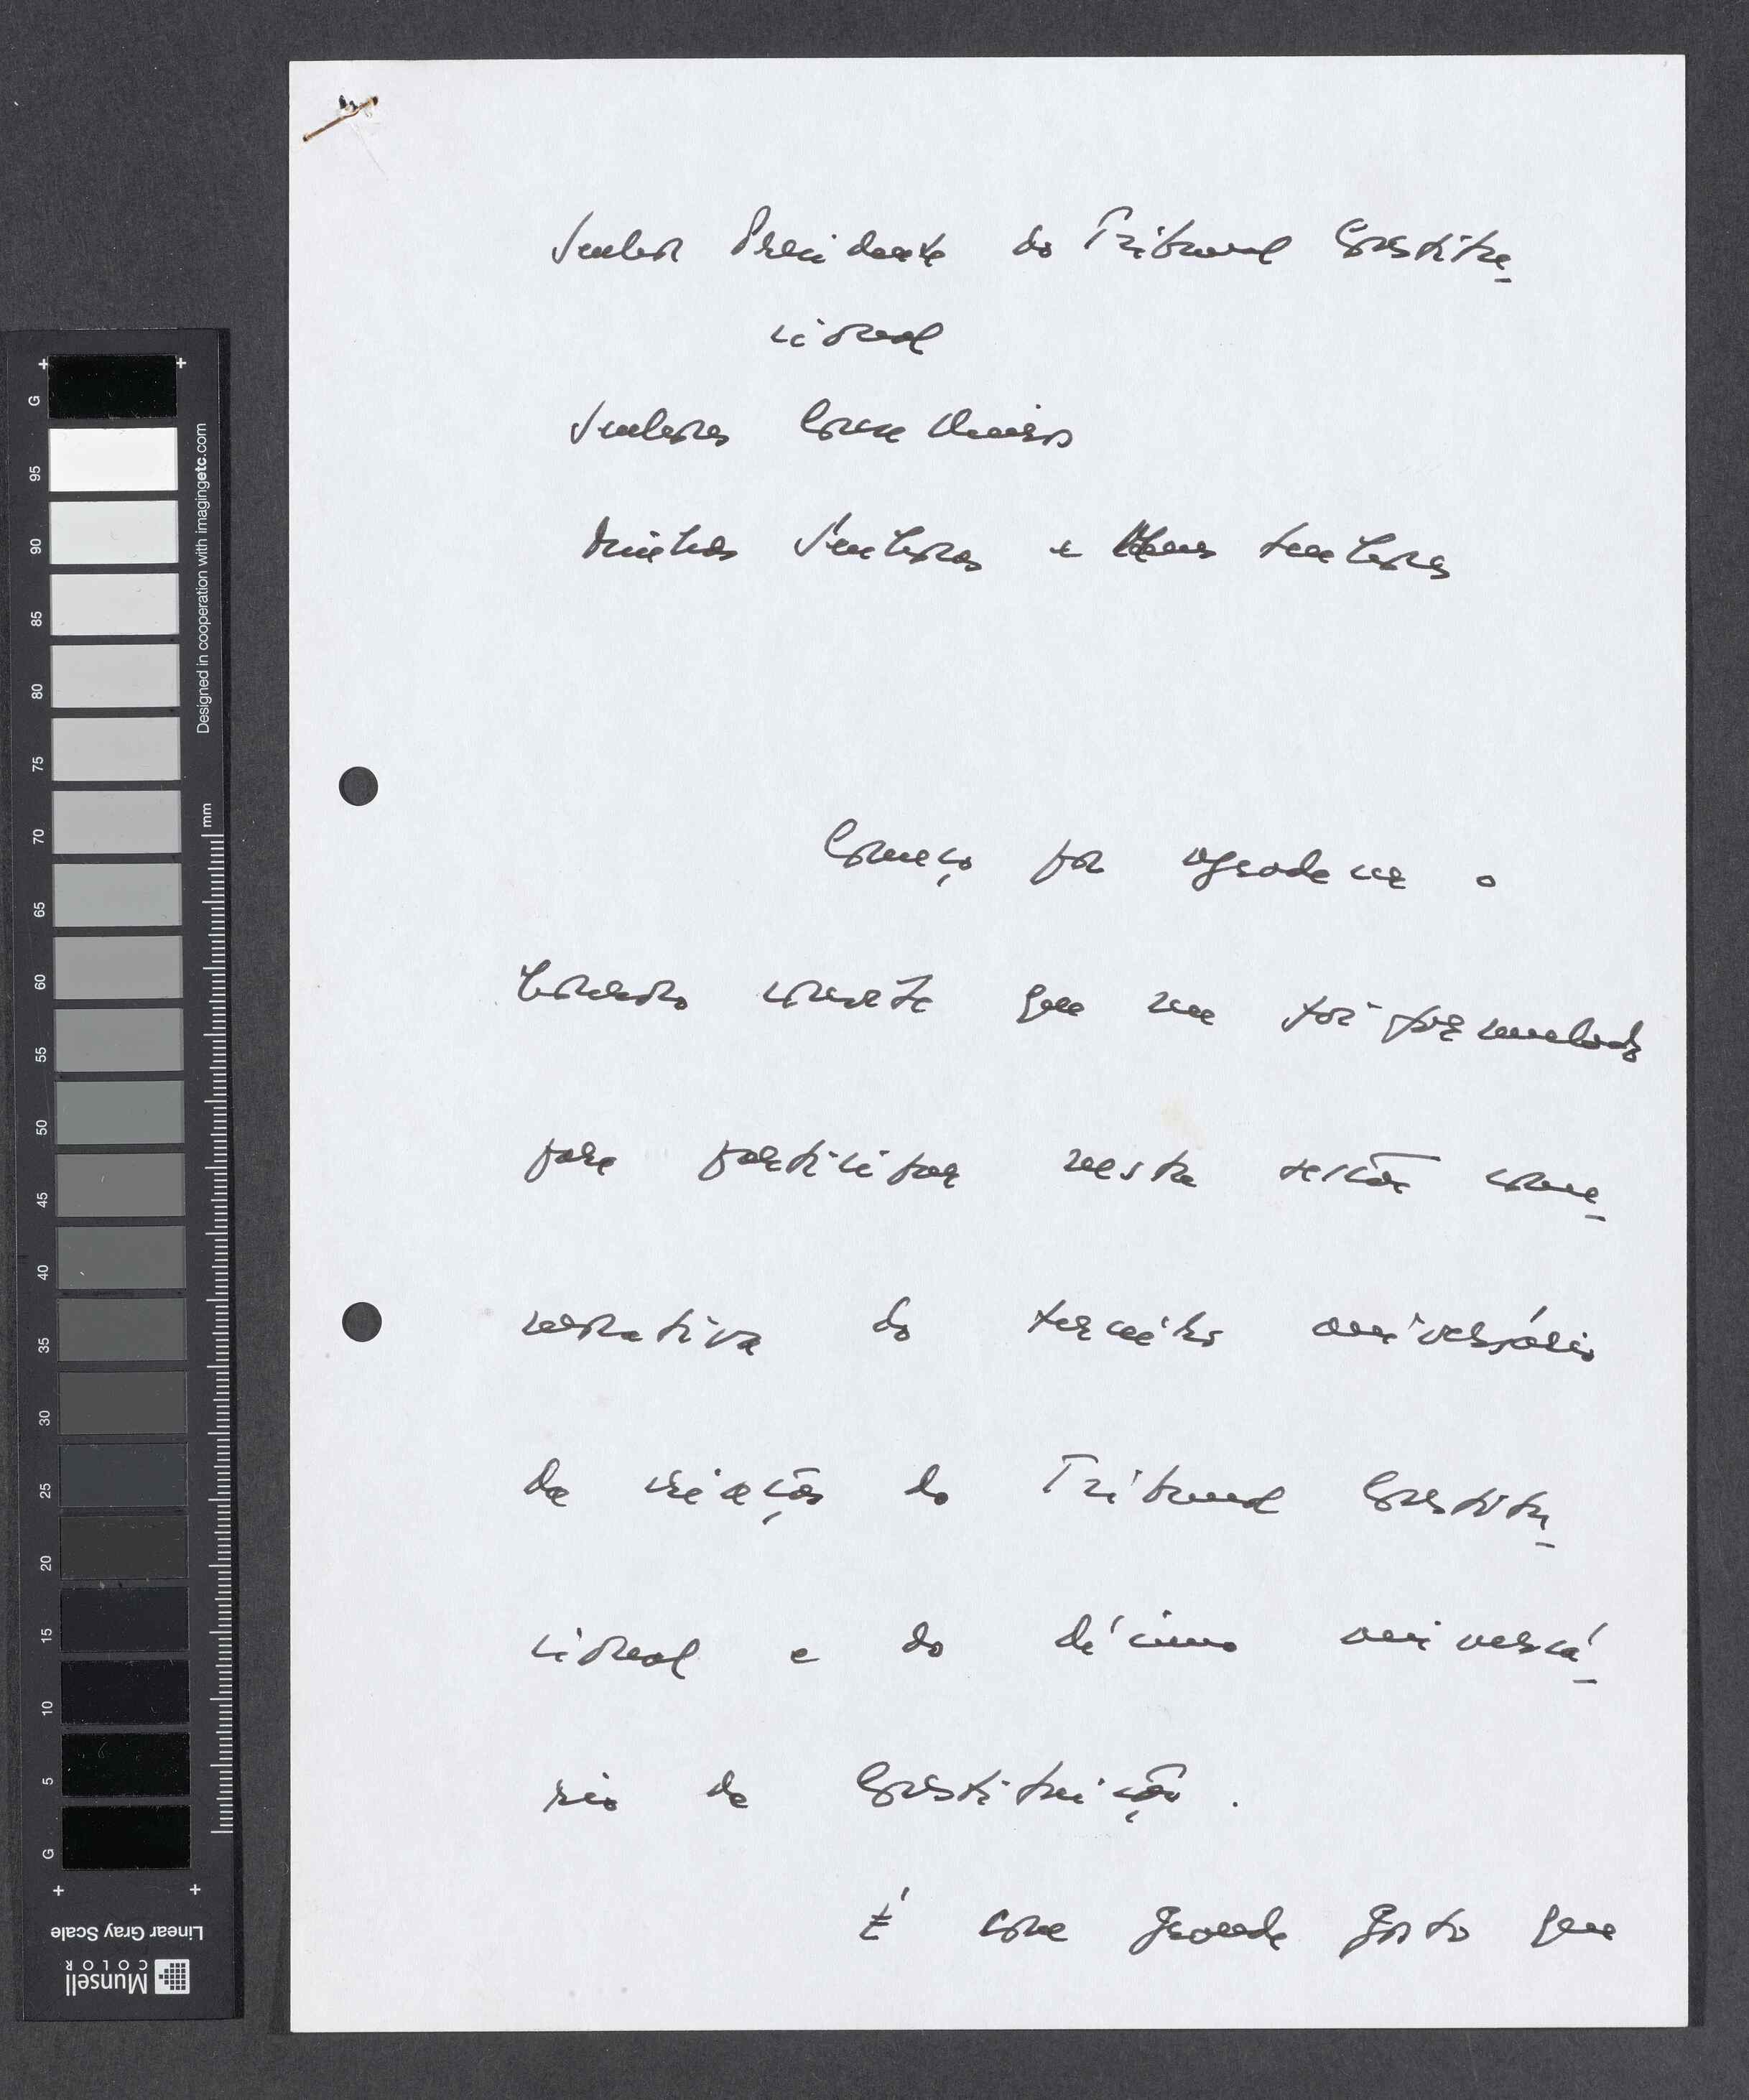 Senhor Presidente do Tribunal Constitu
cional
Senhores Conselheiros
Minhas Senhoras e Meus Senhores
Começo por agradecer o
honroso convite que me foi formulado
para participar nesta sessão come
morativa do terceiro aniversário
da criação do Tribunal Constitu
cional e do décimo aniversá
rio da Constituição.
É com grande gosto que
G
95
90
85
80
75
70
65
60
55
50
45
40
35
30
25
20
15
10
5
G
mm
Designed in cooperation with imagingetc.com
Linear Gray Scale
Munsell
COLOR